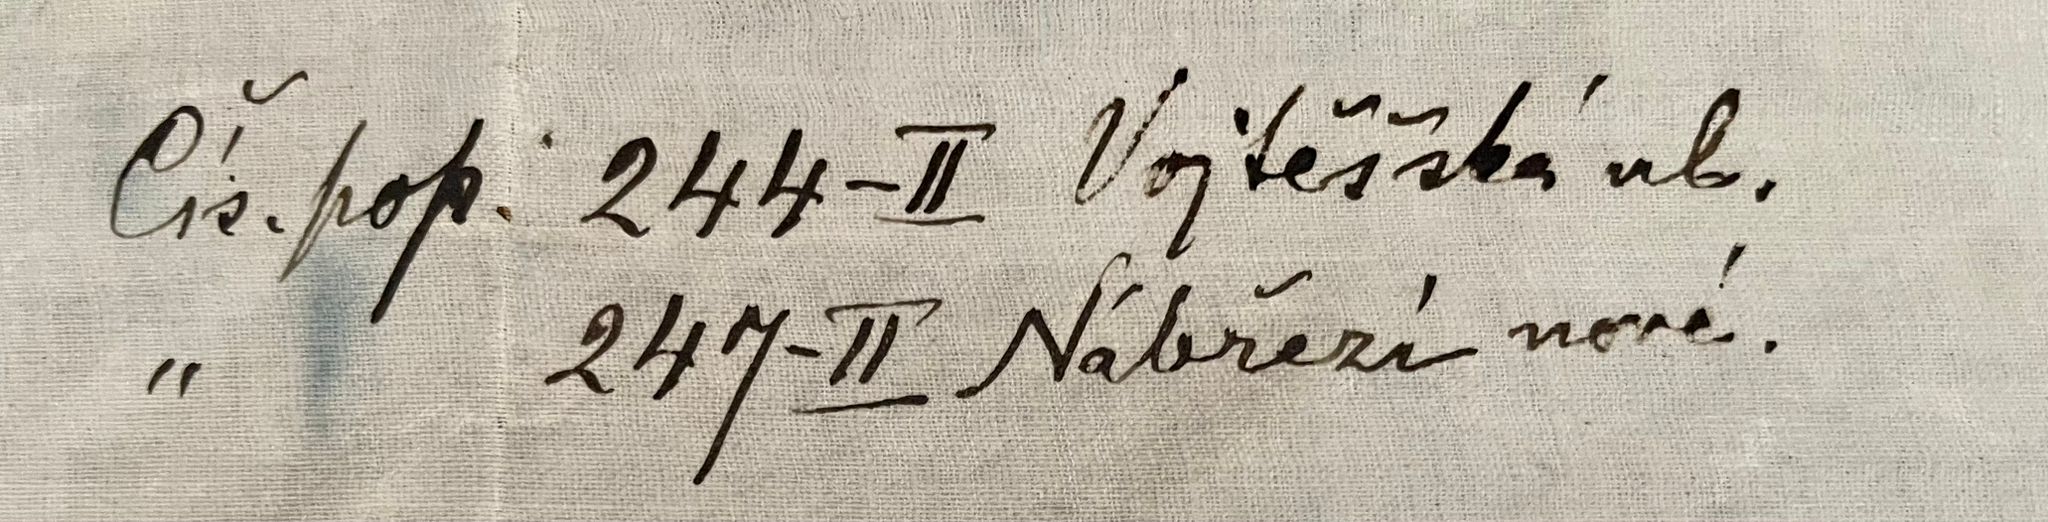 Čís. pop. 244-II Vojtěšská ul.
" 247-II Nábřezí nové.